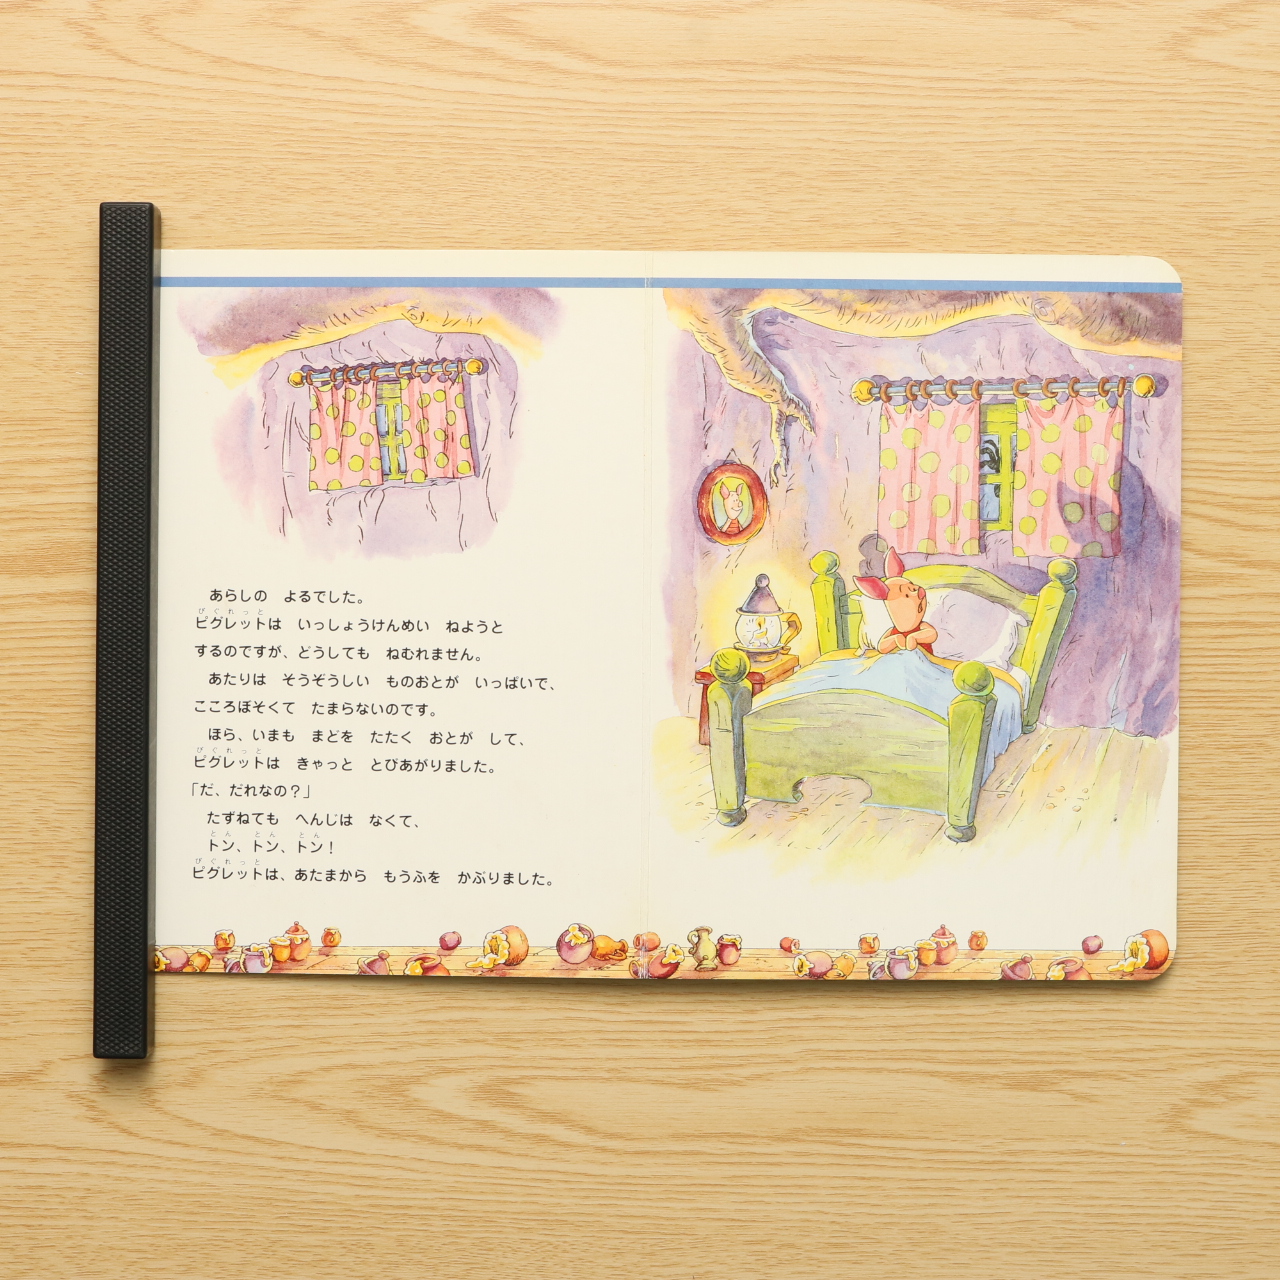 あらしの　よるでした。
ピグレットは　いっしょうけんめい　ねようと
するのですが、どうしても　ねむれません。
あたりは　そうぞうしい　ものおとが　いっぱいで、
こころぼそくて　たまらないのです。
ほら、いまも　まどを　たたく　おとが　して、
ピグレットは　きゃっと　とびあがりました。
「だ、だれなの？」
たずねても　へんじは　なくて、
トン、トン、トン！
ピグレットは、あたまから　もうふを　かぶりました。